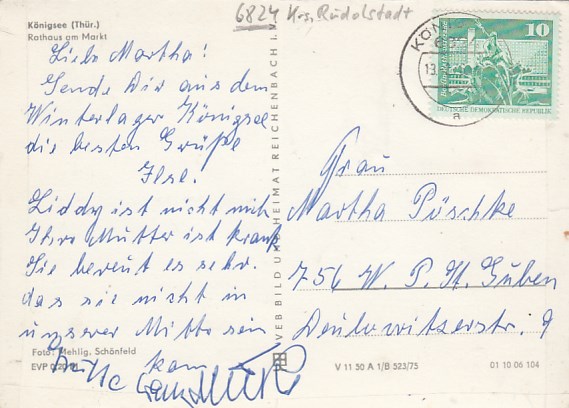 Königsee (Thür.)
Rathaus am Markt
6824 Krs, Rudolstadt
Liebe Martha!
Sende Dir aus dem
Winterlager Königsee
die besten Grüße
Ilse.
Liddy ist nicht mit
Ihre Mutter ist krank
Sie bereut es sehr.
das sie nicht in
unserer Mitte sein
kann
Foto: Mehlig, Schönfeld
EVP 0,20 M
VEB BILD UND HEIMAT REICHENBACH I.
10
DEUTSCHE DEMOKRATISCHE REPUBLIK
13.
a
Frau
Martha Pöschke
756 W. P. St. Guben
9
V 11 50 A 1/B 523/75
01 10 06 104